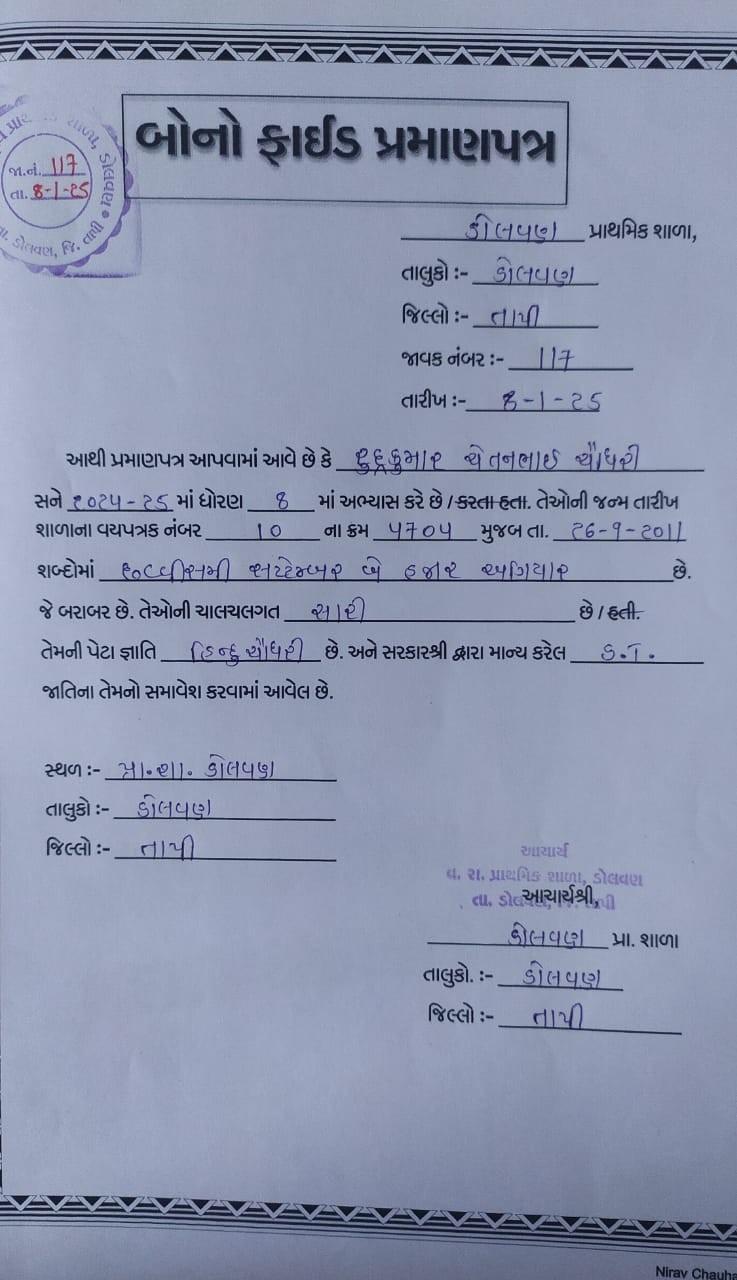 જા.નં. 117
તા. 8-1-25
બોનો ફાઈડ પ્રમાણપત્ર
ડોલવણ પ્રાથમિક શાળા,
તાલુકો :- ડોલવણ
જિલ્લો :- તાપી
જાવક નંબર :- 117
તારીખ :- 8-1-25
આથી પ્રમાણપત્ર આપવામાં આવે છે કે ચેતનભાઈ ચૌધરી
સને ૨૦૨૫-૨૫ માં ધોરણ 8 માં અભ્યાસ કરે છે / કરતા હતા. તેઓની જન્મ તારીખ
શાળાના વયપત્રક નંબર 10 ના ક્રમ ૫૭૦૫ મુજબ તા. ૨6-9-૨૦11
શબ્દોમાં છવ્વીસમી સપ્ટેમ્બર બે હજાર અગિયાર છે.
જે બરાબર છે. તેઓની ચાલચલગત સારી છે / હતી.
તેમની પેટા જ્ઞાતિ હિન્દુ ચૌધરી છે. અને સરકારશ્રી દ્વારા માન્ય કરેલ S.T.
જાતિના તેમનો સમાવેશ કરવામાં આવેલ છે.
સ્થળ :- પ્રા.શા. ડોલવણ
તાલુકો :- ડોલવણ
જિલ્લો :- તાપી
આચાર્ય
વ. રા. પ્રાથમિક શાળા, ડોલવણ
આચાર્યશ્રી,
ડોલવણ પ્રા. શાળા
તાલુકો. :- ડોલવણ
જિલ્લો :- તાપી